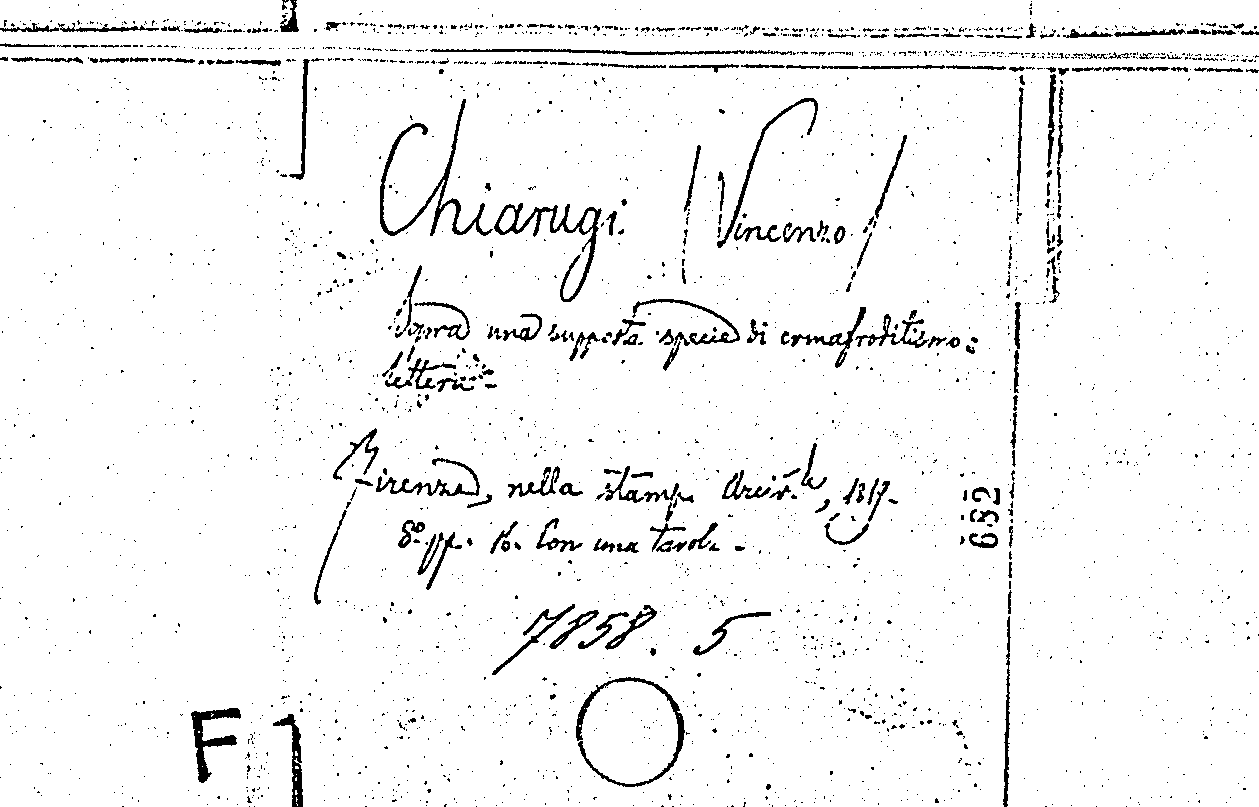 Chiarugi. (Vincenzo)
Sopra una supposta specie di ermafroditismo:
lettera.-
Firenze, nella stamp. Arciv.le, 1819.
8.º pp. 16. Con una tavola.
682
7858. 5
F